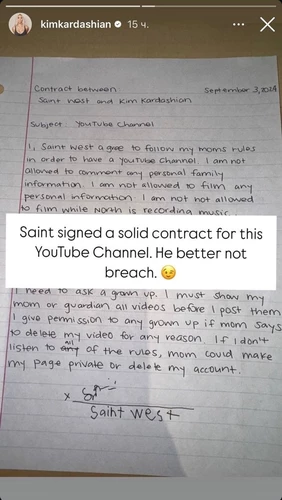 kimkardashian 15 ч.
Contract between September 3, 2024
Saint West and Kim Kardashian
Subject: YouTube Channel
I, Saint West agree to follow my moms rules
in order to have a YouTube Channel. I am not
allowed to comment any personal family
information. I am not allowed to film any
personal information. I am not not allowed
to film while North is recording music.
Saint signed a solid contract for this
YouTube Channel. He better not
breach. 😉
I need to ask a grown up. I must show my
mom or guardian all videos before I post them.
I give permission to any grown up if mom says
to delete my video for any reason. If I don't
listen to all of the rules, mom could make
my page private or delete my account.
x
Saint West